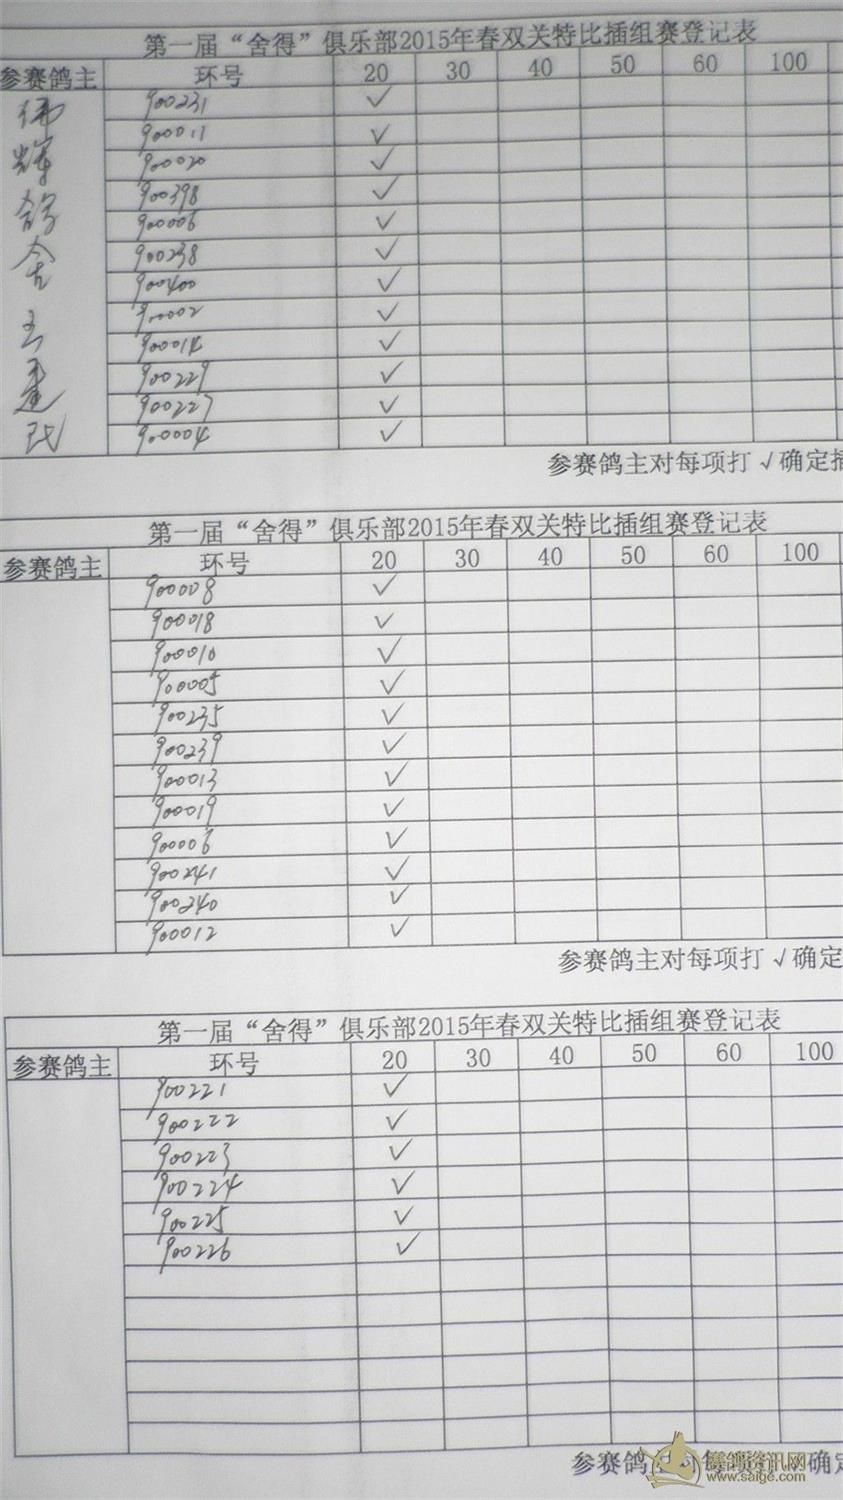 第一届“舍得”俱乐部2015年春双关特比插组赛登记表
参赛鸽主 环号 20 30 40 50 60 100
900231 ✓
900011 ✓
900020 ✓
900398 ✓
900006 ✓
900238 ✓
900400 ✓
900002 ✓
900014 ✓
900229 ✓
900227 ✓
900004 ✓
辉
鸽
舍
参赛鸽主对每项打√确定插
第一届“舍得”俱乐部2015年春双关特比插组赛登记表
参赛鸽主 环号 20 30 40 50 60 100
900008 ✓
900018 ✓
900010 ✓
900005 ✓
900235 ✓
900239 ✓
900013 ✓
900019 ✓
900006 ✓
900241 ✓
900240 ✓
900012 ✓
参赛鸽主对每项打√确定
第一届“舍得”俱乐部2015年春双关特比插组赛登记表
参赛鸽主 环号 20 30 40 50 60 100
900221 ✓
900222 ✓
900223 ✓
900224 ✓
900225 ✓
900226 ✓
参赛鸽主对每项打√确定
赛鸽资讯网
www.saige.com